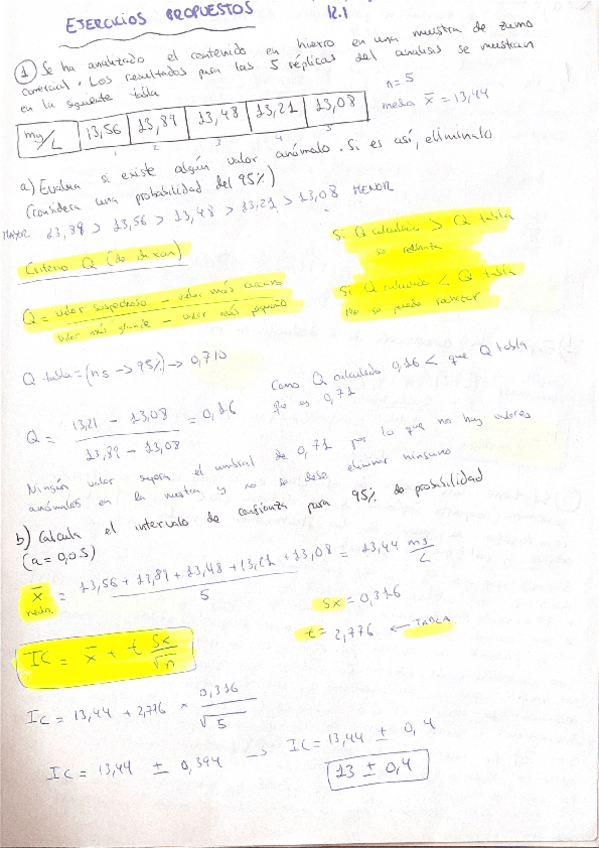 EJERCICIOS PROPUESTOS R.1
① Se ha analizado el contenido en hierro en una muestra de zumo
comercial. Los resultados para las 5 réplicas del analisis se muestran
en la siguiente tabla
n=5
media x̄ = 13,44
mg/L 13,56 13,89 13,48 13,21 13,08
1 2 3 4 5
a) Evalua si existe algún valor anómalo. Si es así, eliminalo
(considera una probabilidad del 95%)
MAYOR 13,89 > 13,56 > 13,48 > 13,21 > 13,08 MENOR
Criterio Q (de dixon)
Q = valor sospechoso - valor más cercano / valor más grande - valor más pequeño
Si Q calculado > Q tabla
se rechaza
Si Q calculado < Q tabla
No se puede rechazar
Q tabla = (n5 → 95%) → 0,710
Q = 13,21 - 13,08 / 13,89 - 13,08 = 0,16
Como Q calculado 0,16 < que Q tabla
que es 0,71
Ningún valor supera el umbral de 0,71 por lo que no hay valores
anómalos en la muestra y no se debe eliminar ninguno
b) Calcula el intervalo de confianza para 95% de probabilidad
(a = 0,05)
x̄ = 13,56 + 13,89 + 13,48 + 13,21 + 13,08 / 5 = 13,44 mg/L
media
Sx = 0,316
t = 2,776 ← TABLA
IC = x̄ + t Sx/√n
IC = 13,44 + 2,776 × 0,316/√5
IC = 13,44 ± 0,394 → IC = 13,44 ± 0,4
13 ± 0,4